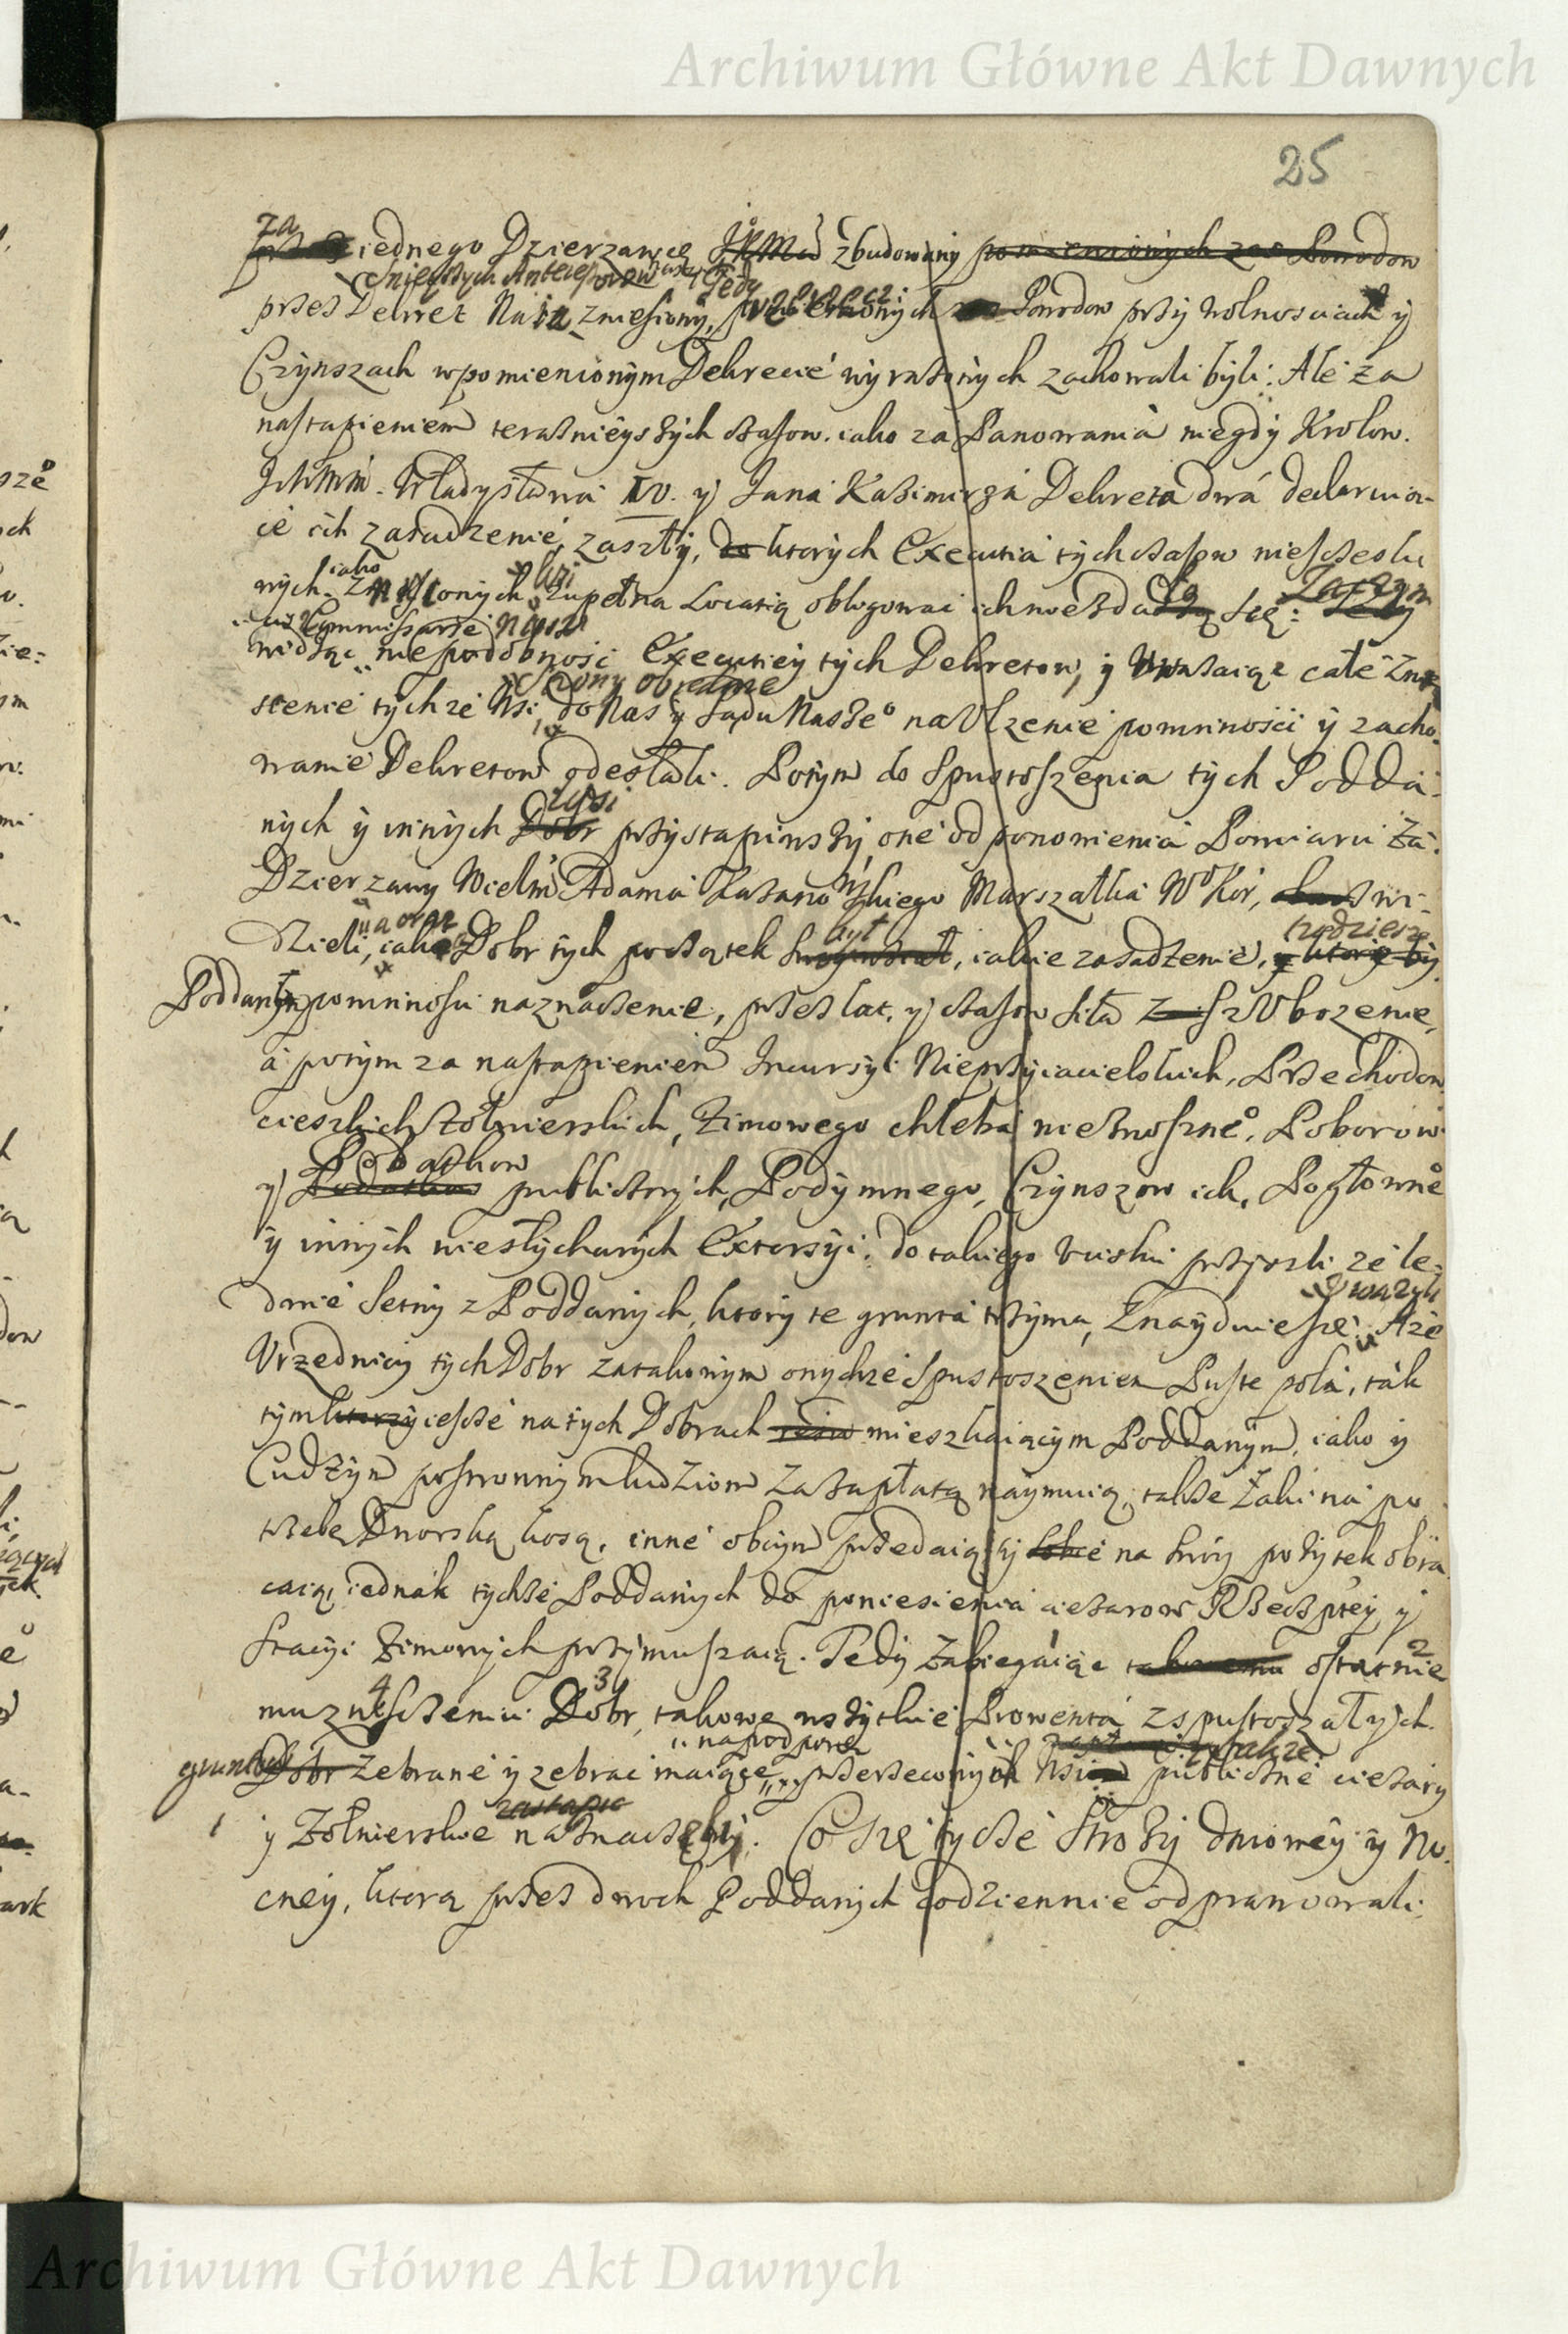 Archiwum Główne Akt Dawnych
25
za
iednego Dzierzawcę JKMci zbudowany pomienionych zas Powodow
Tedy
przes Dekret Nasz zniesiony, Powodow przy wolnosciach y
Czynszach wpomienionym Dekrecie wyrazonych zachowali byli: Ale za
nastapieniem terasnieyszych czasow. iako za Panowania niegdy Krolow.
Ichmm. Władysława IV. y Jana Kazimirza Dekreta dwa declarwia-
ce ich zasadzenie, zaszły, do ktorych Executia tych czasow nieszczesli
iako wsi Zaczym
wych zniszczonych zupełna Locatią obligowac ich niezda się: Tedy
ciz Commissarze Naszi
widząc niepodobnosc Executiey tych Dekretow, y uwazaiąc całe zni
strony obiedwie
sczenie tychze Wsi, do Nas y Sądu Naszeo na Ulzenie powinnosci y zacho-
wanie Dekretow odesłali. Potym do spustoszenia tych Podda-
wsi
nych y innych Dobr przystapiwszy, one od ponowienia Pomiaru za
Dzierzawy Wielm Adama Kazanowskiego Marszałka Wo Kor, wi-
a oraz był
dzieli, iako Dobr tych początek, iakie zasadzenie, y ktorzy by
Poddanym powinnosci naznaczenie, przes lat y czasow siła z Ubozenie,
a potym za nastapieniem Incursyi Nieprzyiacielskich, Przechodow
cieszkich Zołnierskich, Zimowego chleba nieznoszneo, Poborow
Podatkow
y Podatkow publicznych, Podymnego, Czynszow ich, Pogłowneo
y innych niesłychanych Extorsyi. do takiego ucisku przyszli, ze le-
Uwazyli
dwie setny z Poddanych, ktory te grunta trzyma, Znayduie sie. Aże
Vrzednicy tych Dobr zatakowym onychze Spustoszeniem Puste pola, tak
tym ktorzy ieszcze na tych Dobrach mieszkaiącym Poddanym, iako y
Cudzym postronnym ludziom Za zapłatą naymuią, takze Łaki na po
trzebę Dworską koszą, inne obcym przedaią y sobie na swoy pozytek obra
caią, iednak tychze Poddanych do poniesienia ciezarow Rzeczptey y
1 2
Stacyi Zimowych przymuszaią. Tedy zabiegaiąc takowemu ostatnie
4 3
mu zniszczeniu Dobr, takowe wszytkie Prowenta z spustoszałych
na podporę
gruntow Dobr Zebrane y zebrac maiące, przerzeczonych Wsi publiczne ciezary
y Zołnierskie naznaczyli. Co się tycze Strozy dniowey y No-
cney, ktorą przes dwoch Poddanych codziennie odprawowali:
Archiwum Główne Akt Dawnych